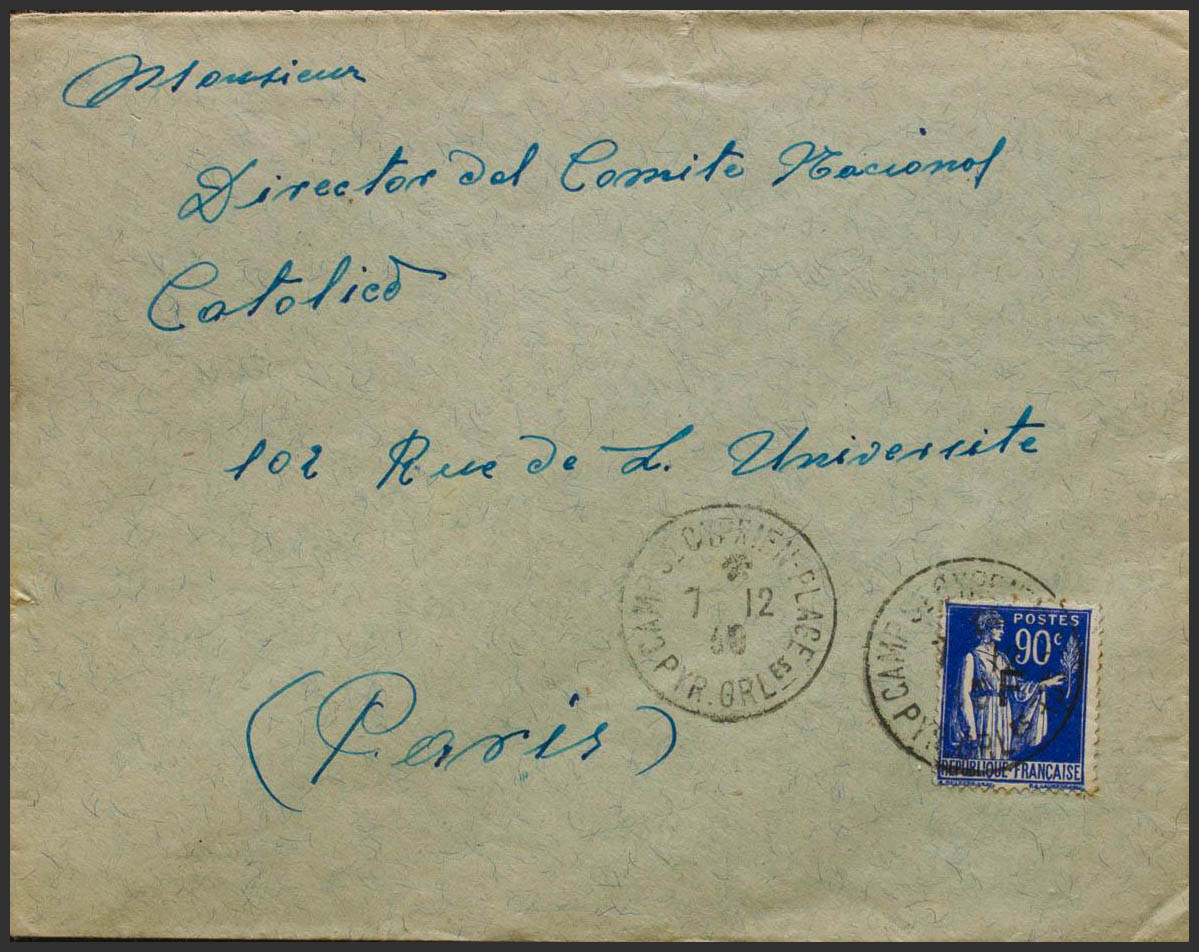 Monsieur
Director del Comite Nacional
Catolico
102 Rue de L. Universite
(Paris)
CAMP ST CYPRIEN-PLAGE
7 12
PYR. ORLES
CAMP
POSTES
90c
F
REPUBLIQUE FRANÇAISE